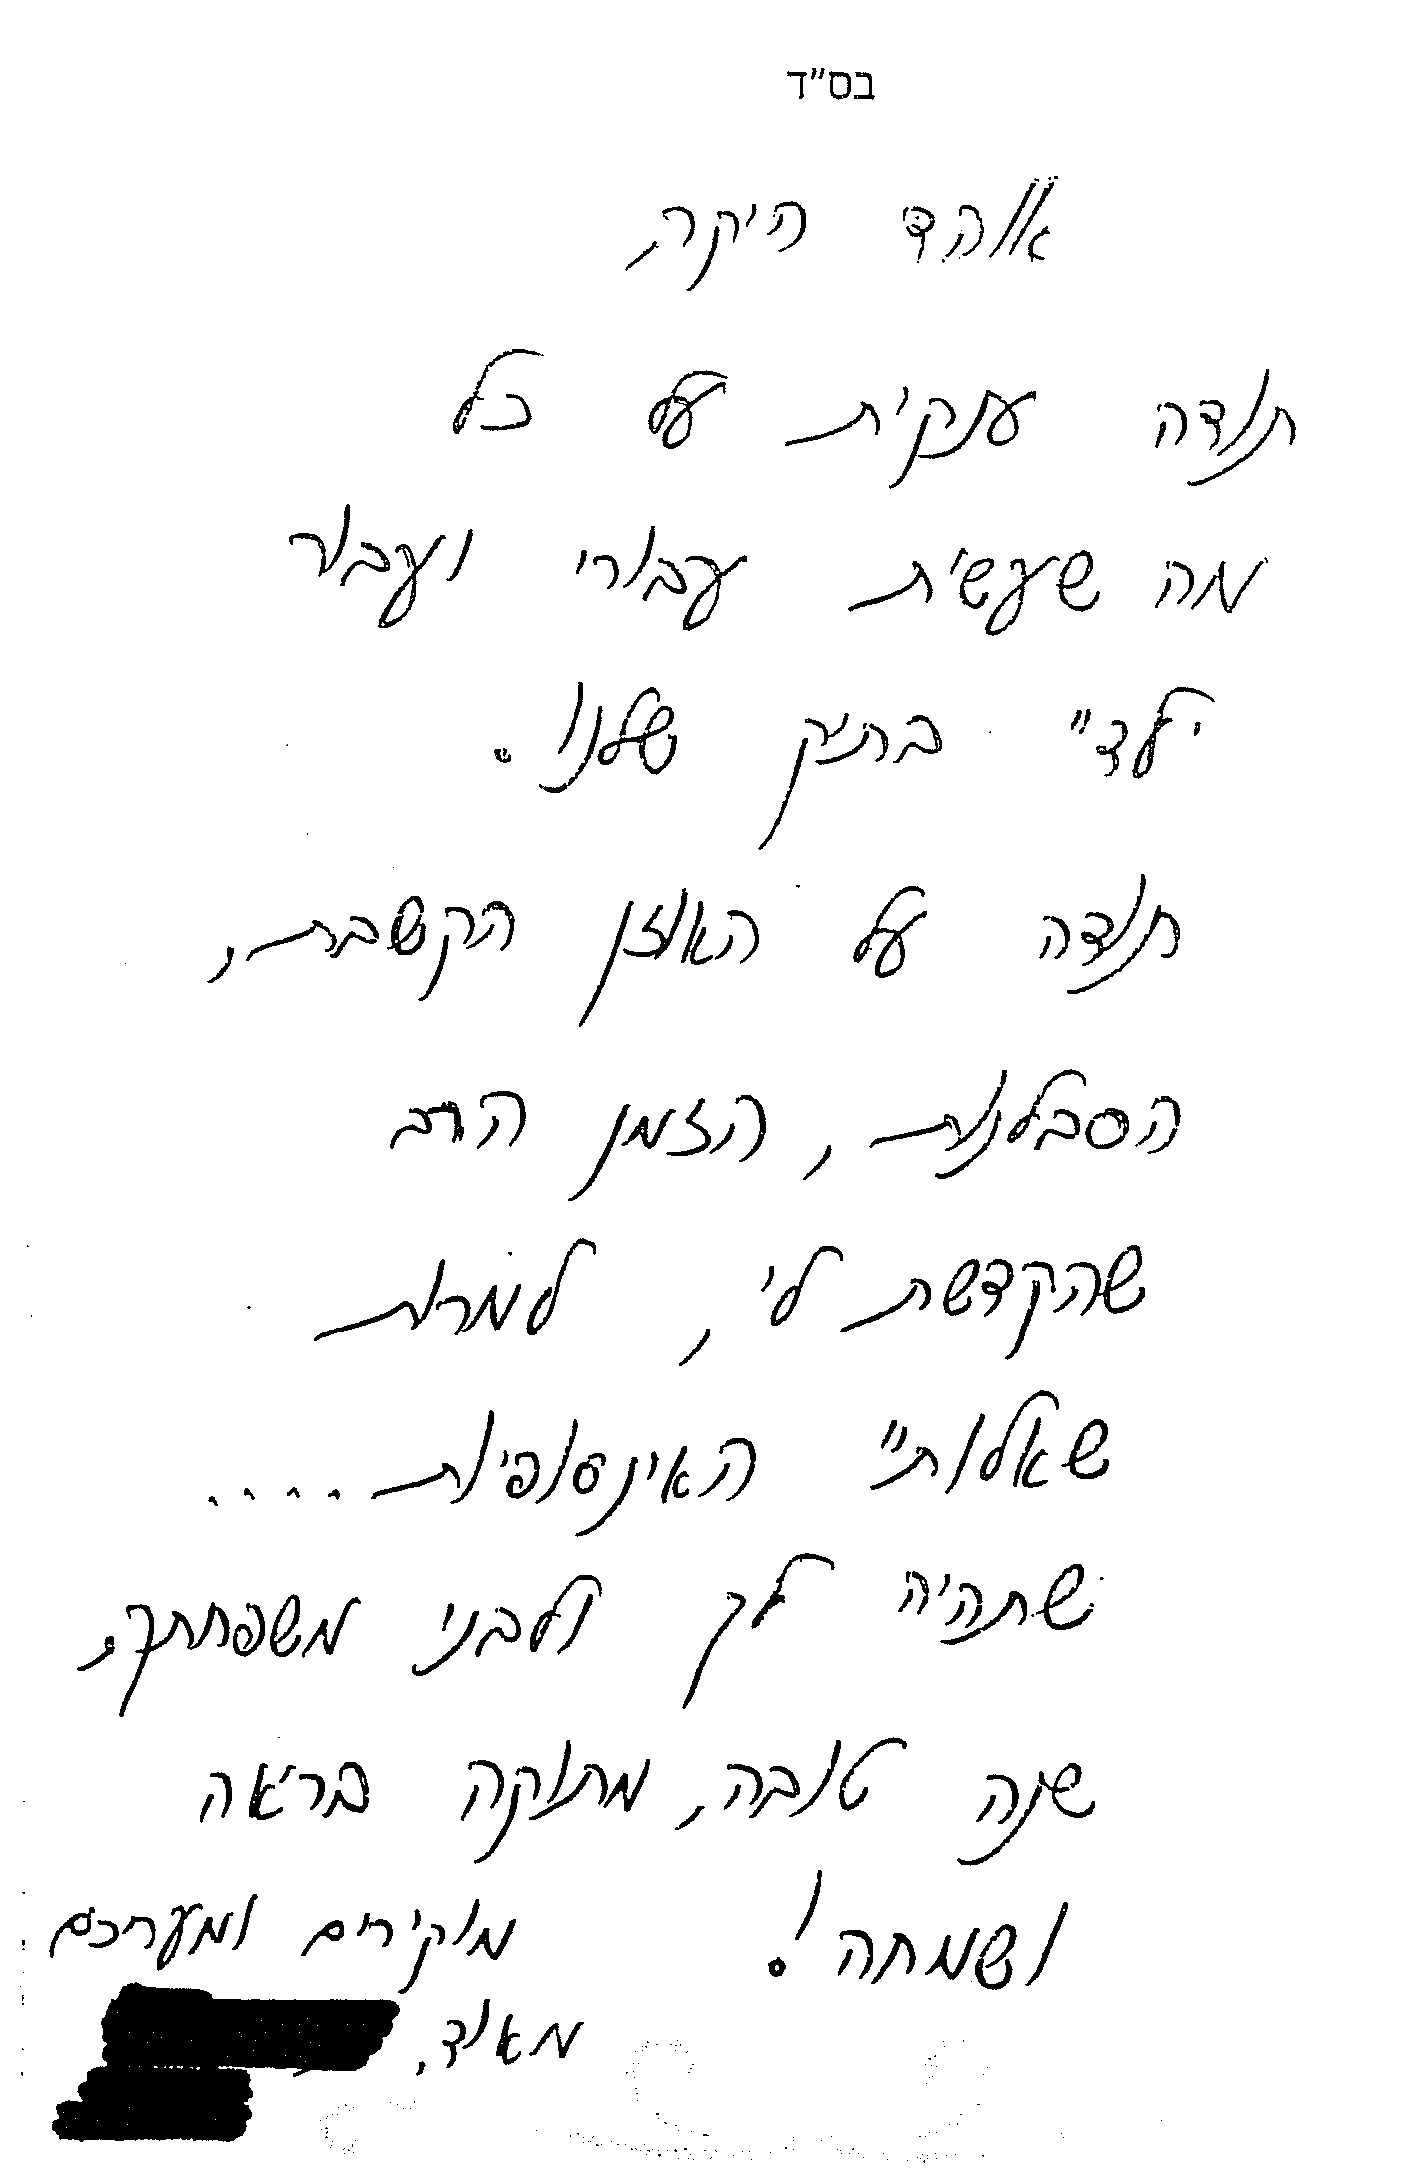 בס"ד
אוהד היקר,
תודה ענקית על כל
מה שעשית עבורי ועבור
ילדיי בתיק שלנו.
תודה על האוזן הקשבת,
הסבלנות, הזמן הרב
שהקדשת לי, למרות
שאלותיי האינסופיות....
שתהיה לך ולבני משפחתך,
שנה טובה, מתוקה בריאה
ושמחה!
מוקירים ומעריכים
מאוד,